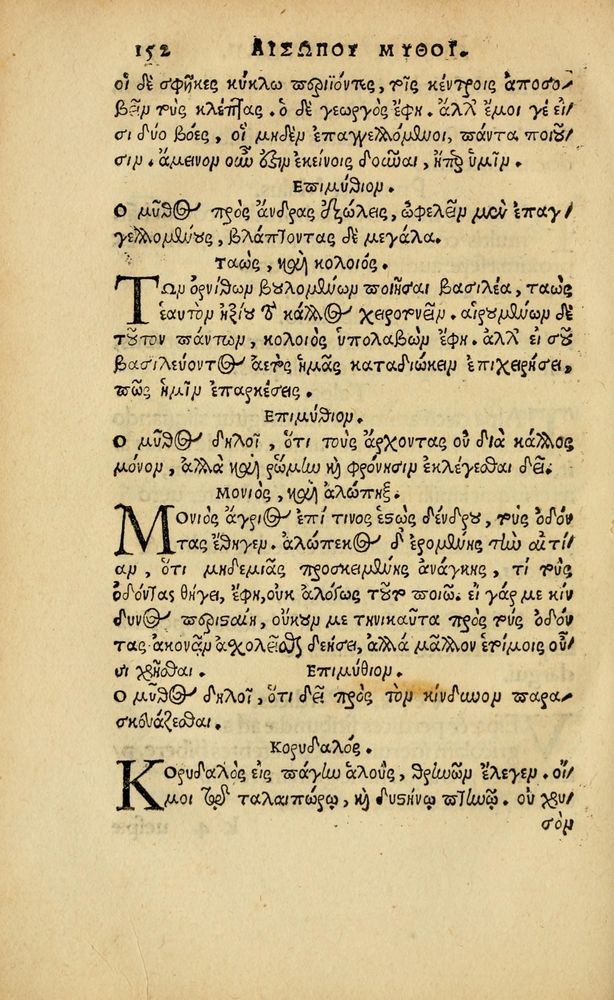 152 ΑΙΣΩΠΟΥ ΜΥΘΟΙ.
οἱ δὲ σφῆκες κύκλῳ περιϊόντες, τοῖς κέντροις ἀποσο-
βεῖν τοὺς κλέπτας. ὁ δὲ γεωργὸς ἔφη. ἀλλ' ἔμοι γέ εἰ-
σι δύο βόες, οἳ μηδὲν ἐπαγγελλόμενοι, πάντα ποιοῦ-
σιν. ἄμεινον οὖν ἐστὶν ἐκείνοις δοῦναι, ἤπερ ὑμῖν.
Ἐπιμύθιον.
Ὁ μῦθος πρὸς ἄνδρας ἐξώλεις, ὠφελεῖν μὲν ἐπαγ-
γελλομένους, βλάπτοντας δὲ μεγάλα.
Ταὼς, καὶ κολοιός.
Τῶν ὀρνίθων βουλομένων ποιῆσαι βασιλέα, ταὼς
ἑαυτὸν ἠξίου διὰ κάλλος χειροτονεῖν. αἱρουμένων δὲ
τοῦτον πάντων, κολοιὸς ὑπολαβὼν ἔφη. ἀλλ' εἰ σοῦ
βασιλεύοντος ἀετὸς ἡμᾶς καταδιώκειν ἐπιχειρήσει,
πῶς ἡμῖν ἐπαρκέσεις.
Ἐπιμύθιον.
Ὁ μῦθος δηλοῖ, ὅτι τοὺς ἄρχοντας οὐ διὰ κάλλος
μόνον, ἀλλὰ καὶ ῥώμην καὶ φρόνησιν ἐκλέγεσθαι δεῖ.
Μονιὸς, καὶ ἀλώπηξ.
Μονιὸς ἄγριος ἐπί τινος ἑστὼς δένδρου, τοὺς ὀδόν
τας ἔθηγεν. ἀλώπεκος δ' ἐρομένης τὴν αἰτί-
αν, ὅτι μηδεμιᾶς προσκειμένης ἀνάγκης, τί τοὺς
ὀδόντας θήγει, ἔφη, οὐκ ἀλόγως τοῦτο ποιῶ. εἰ γάρ με κίν
δυνος περισταίη, οὐκοῦν με τηνικαῦτα πρὸς τοὺς ὀδόν
τας ἀκονᾶν ἀσχολεῖσθαι δεήσει, ἀλλὰ μᾶλλον ἑτοίμοις οὖ-
σι χρῆσθαι. Ἐπιμύθιον.
Ὁ μῦθος δηλοῖ, ὅτι δεῖ πρὸς τὸν κίνδυνον παρα-
σκευάζεσθαι.
Κορυδαλός.
Κορυδαλὸς εἰς πάγην ἁλοὺς, θρηνῶν ἔλεγεν. οἴ-
μοι τῷ ταλαιπώρῳ, καὶ δυστήνῳ πτηνῷ. οὐ χρυ-
σὸν